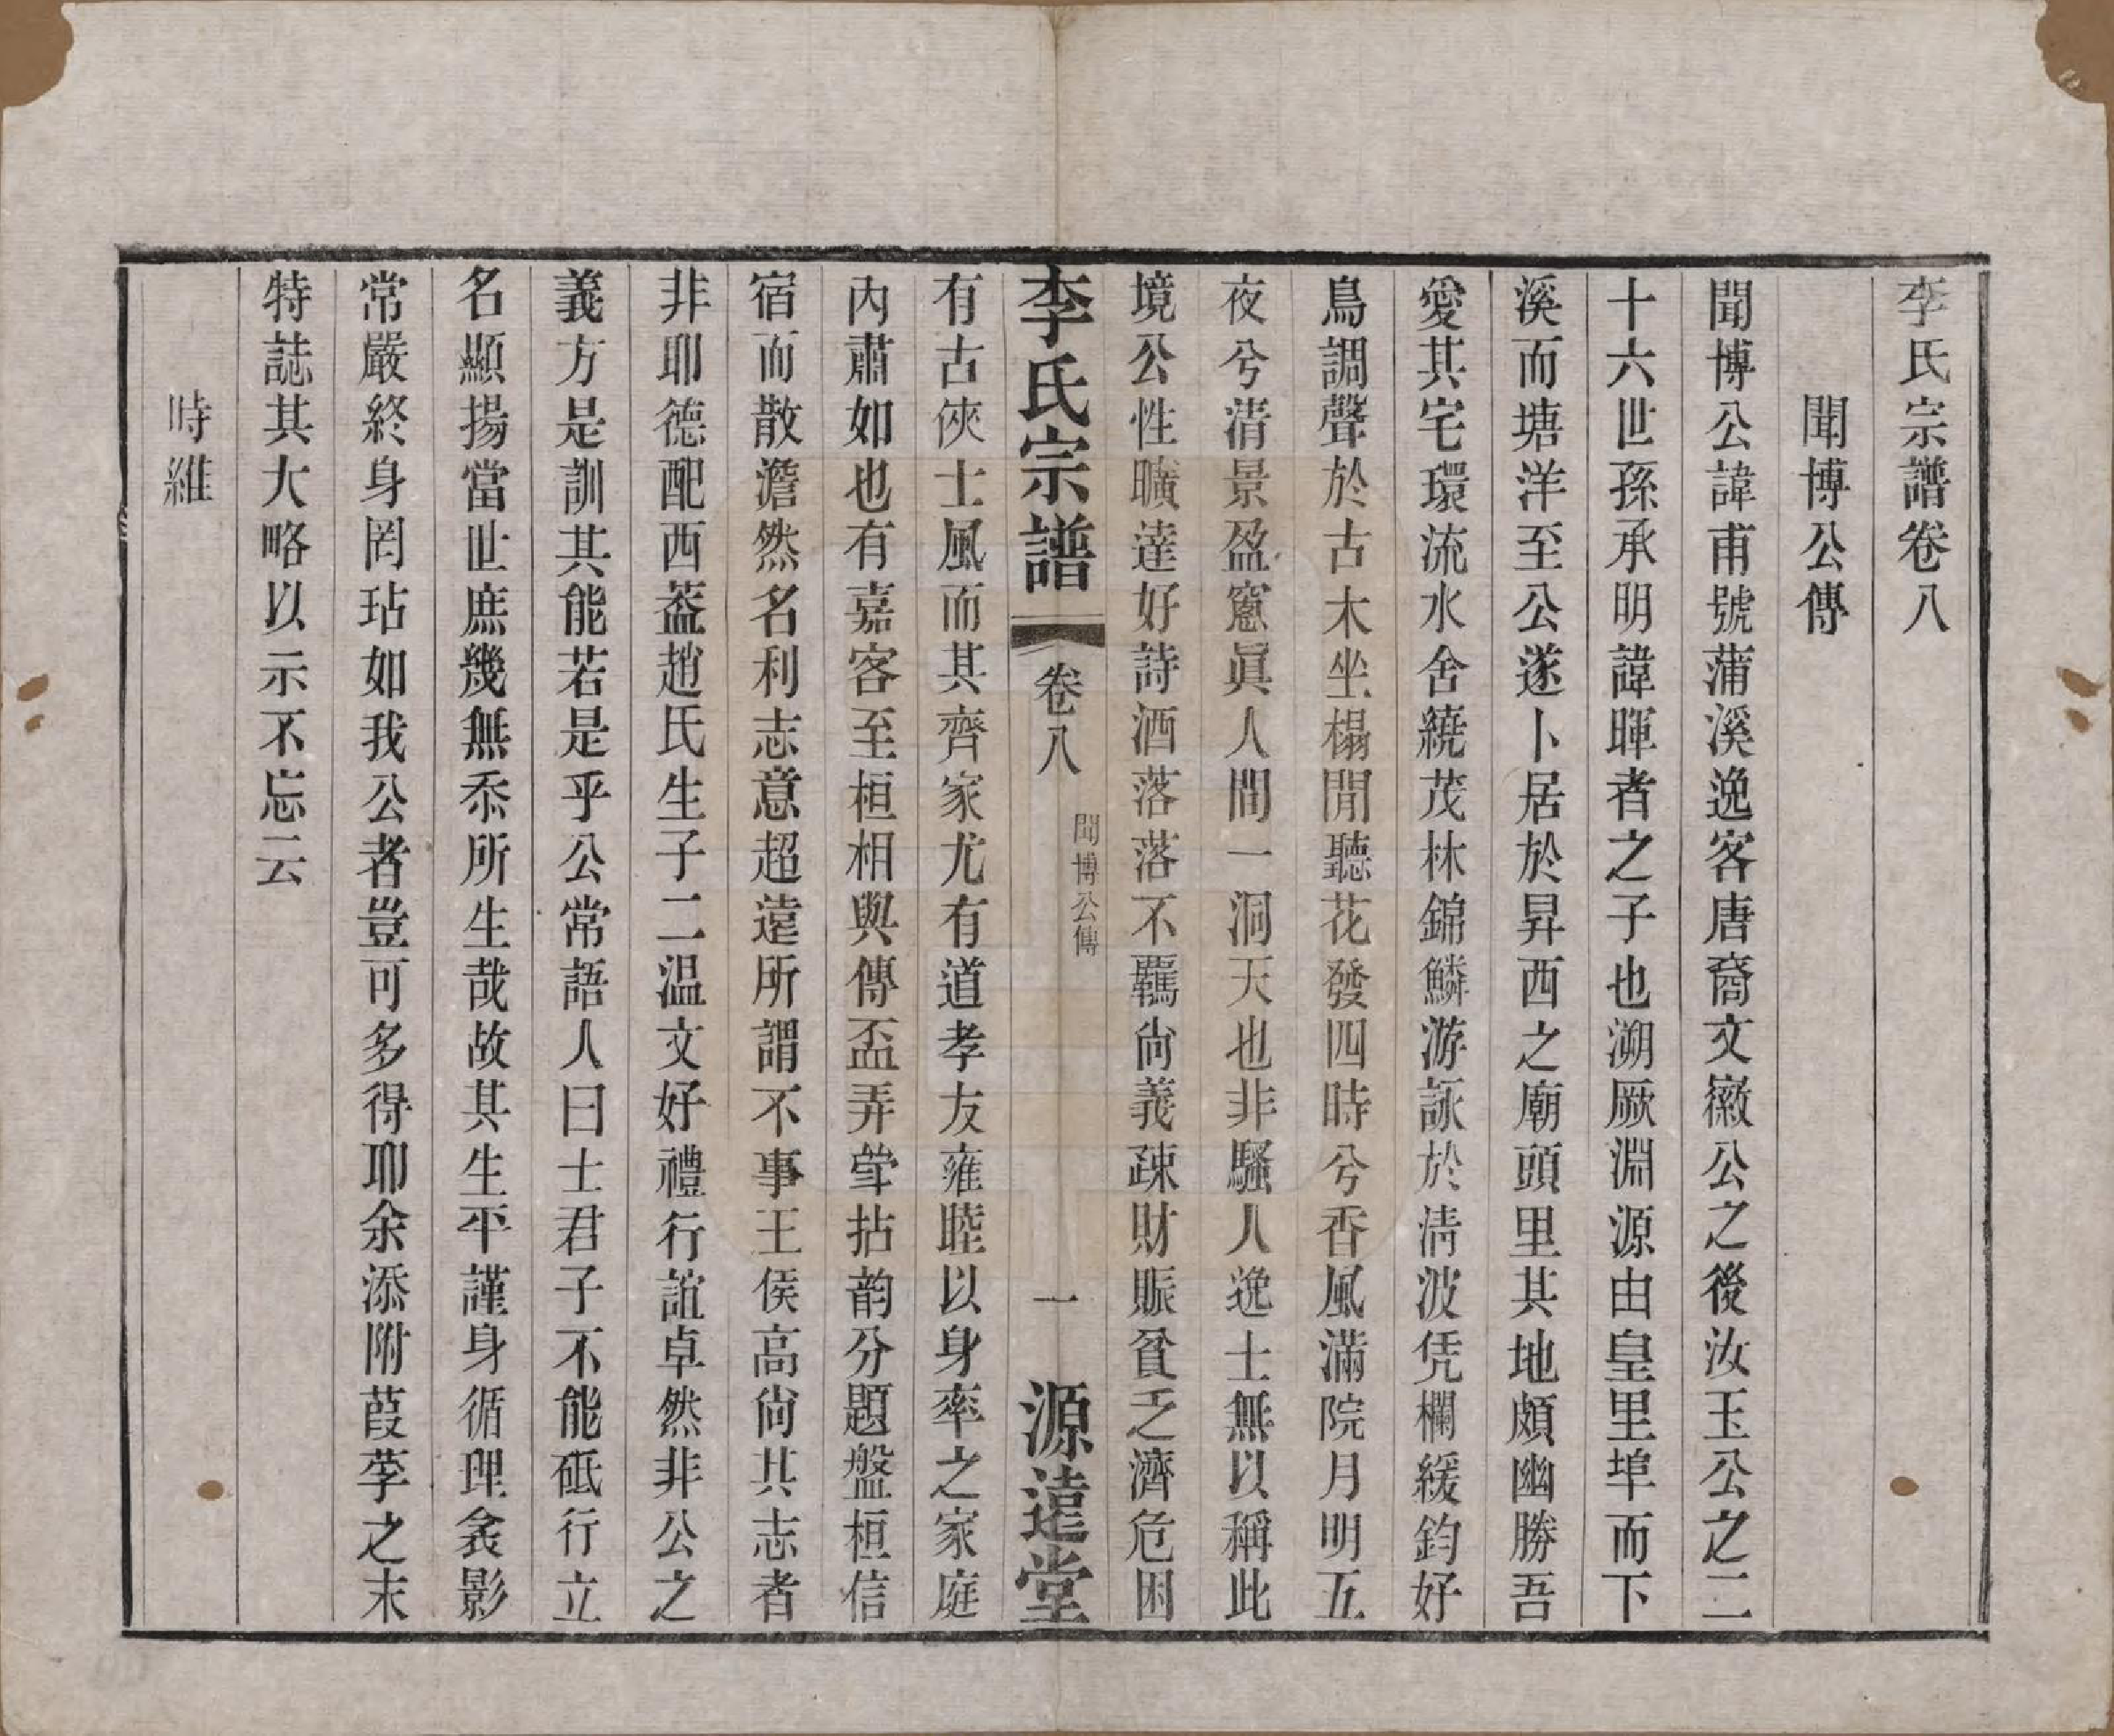 李氏宗譜卷八
聞博公傳
聞博公諱甫號蒲溪逸客唐裔文徽公之後汝玉公之二
十六世孫承明諱暉者之子也溯厥淵源由皇里埠而下
溪而塘洋至公遂卜居於昇西之廟頭里其地頗幽勝吾
愛其宅環流水舍繞茂林錦鱗游詠於清波凭欄緩鈞好
鳥調聲於古木坐榻閒聽花發四時兮香風滿院月明五
夜兮清景盈窻眞人間一洞天也非騷人逸士無以稱此
境公性曠達好詩酒落落不羈尙義疎財賑貧乏濟危困
李氏宗譜 卷八 聞博公傳 一 源遠堂
有古俠士風而其齊家尤有道孝友雍睦以身率之家庭
內肅如也有嘉客至桓相與傳盃弄斝拈韵分題盤桓信
宿而散澹然名利志意超遠所謂不事王侯高尙其志者
非耶德配西葢趙氏生子二温文好禮行誼卓然非公之
義方是訓其能若是乎公常語人曰士君子不能砥行立
名顯揚當世庶幾無忝所生哉故其生平謹身循理衾影
常嚴終身罔玷如我公者豈可多得耶余添附葭莩之末
特誌其大略以示不忘云
時維